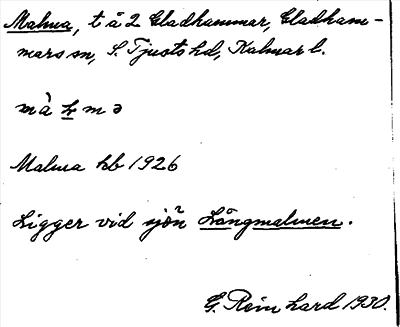 Malma, t å 2 Gladhammar, Gladham-
mars sn, S. Tjusts hd, Kalmar l.
Malma kb 1926
Ligger vid sjön Långmalmen.
G. Reinhard 1930.